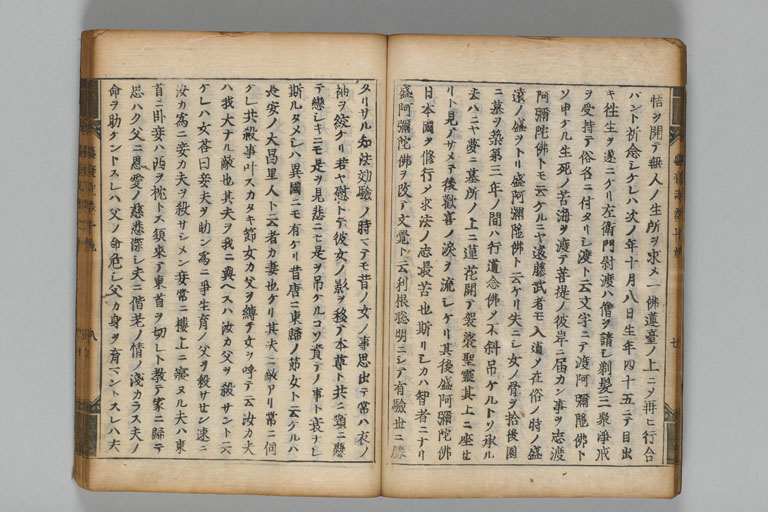 悟ヲ開テ無人ノ生所ヲ求メ一佛蓮臺ノ上ニメ再ヒ行合
バント祈念シケレハ次ノ年十月八日生年四十五ニテ目出
キ往生ヲ遂ニケリ左衛門尉渡ハ僧ヲ請シ剃髪三聚淨戒
ヲ受持テ俗名ニ付タリシ渡ト云文字ニテ渡阿彌陀佛ト
ソ申ケル生死ノ苦海ヲ渡テ菩提ノ彼岸ニ届カン事ヲ志渡
阿彌陀佛トモ云ケルニヤ遠藤武者モ入道ノ在俗ノ時ノ盛
遠ノ盛ヲトリ盛阿彌陀佛ト云ケリ失ニシ女ノ骨ヲ拾後園
ニ墓ヲ築第三年ノ間ハ行道念佛メ不斜吊ケルトソ承ル
去ハニヤ夢ニ墓所ノ上ニ蓮花開テ袈裟聖靈其上ニ座セ
リト見テサメテ後歡喜ノ涙ヲ流シケリ其後盛阿彌陀佛
日本國ヲ修行メ求法ノ志最苦也斯リシカハ智者ニナリ
盛阿彌陀佛ヲ改テ文覺ト云利根聡明ニシテ有驗世ニ勝
タリサル知法効驗ノ時マテモ昔ノ女ノ事思出テ常ハ衣ノ
袖ヲ絞ケリ若ヤ慰トテ彼女ノ影ヲ移テ本尊ト共ニ頸ニ懸
テ戀シキニモ是ヲ見悲ニモ是ヲ吊ケルコソ責テノ事ト哀ナレ
斯ルタメシハ異國ニモ有ケリ昔唐ニ東歸ノ節女ト云ケルハ
長安ノ大昌里人ト云者カ妻也ケリ其夫ニ敵アリ常ニ伺
ケレ共殺事叶スカタキ節女カ父ヲ縛テ女ヲ呼テ云汝カ夫
ハ我大ナル敵也其夫ヲ我ニ與ヘスハ汝カ父ヲ殺サント云
ケレハ女答曰妾夫ヲ助ン為ニ爭生育ノ父ヲ殺サセン速ニ
汝カ為ニ妾カ夫ヲ殺サシメン妾常ニ樓上ニ寢ヌル夫ハ東
首ニ卧妾ハ西ヲ枕トス須來テ東首ヲ切レト教テ家ニ歸テ
思ハク父ニ恩愛ノ慈悲深シ夫ニ偕老ノ情ノ淺カラス夫ノ
命ヲ助ケントスレハ父ノ命危シ父カ身ヲ育マントスレハ夫
七
八